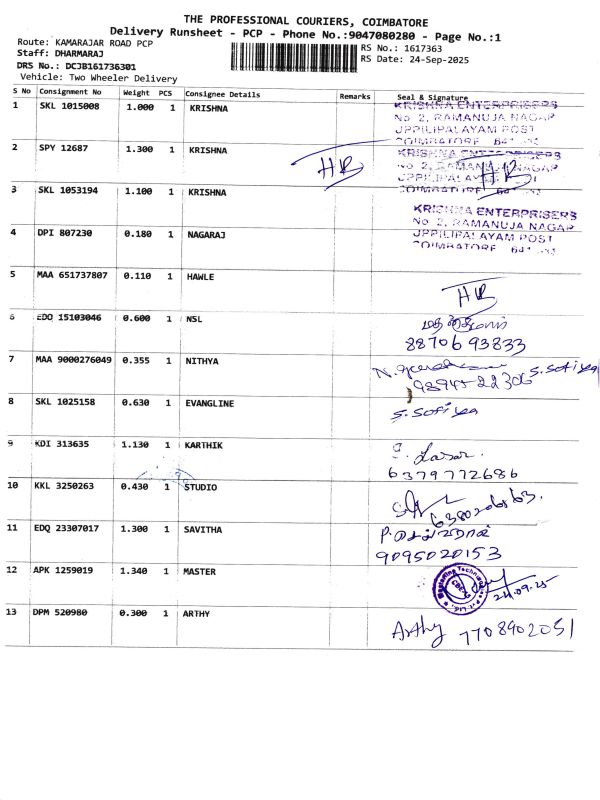 THE PROFESSIONAL COURIERS, COIMBATORE
Delivery Runsheet - PCP - Phone No.:9047080280 - Page No.:1
Route: KAMARAJAR ROAD PCP
RS No.: 1617363
Staff: DHARMARAJ
RS Date: 24-Sep-2025
DRS No.: DCJB161736301
Vehicle: Two Wheeler Delivery
S No Consignment No Weight PCS Consignee Details Remarks Seal & Signature
1 SKL 1015008 1.000 1 KRISHNA
KRISHNA ENTERPRISERS
No 2, RAMANUJA NAGAR
UPPILIPALAYAM POST
COIMBATORE 641
2 SPY 12687 1.300 1 KRISHNA
KRISHNA ENTERPRISERS
No 2, RAMANUJA NAGAP
UPPILIPALAYAM POST
COIMBATORE
3 SKL 1053194 1.100 1 KRISHNA
KRISHNA ENTERPRISERS
No 2, RAMANUJA NAGAP
UPPILIPALAYAM POST
COIMBATORE 641
4 DPI 807230 0.180 1 NAGARAJ
5 MAA 651737807 0.110 1 HAWLE
6 EDQ 15103046 0.600 1 NSL
88706 93833
7 MAA 9000276049 0.355 1 NITHYA
98945 22306 S.Sofiya
8 SKL 1025158 0.630 1 EVANGLINE
S.Sofiya
9 KDI 313635 1.130 1 KARTHIK
6379772686
10 KKL 3250263 0.430 1 STUDIO
11 EDQ 23307017 1.300 1 SAVITHA
9095020153
12 APK 1259019 1.340 1 MASTER
24.09.25
13 DPM 520980 0.300 1 ARTHY
Arthy 7708902051